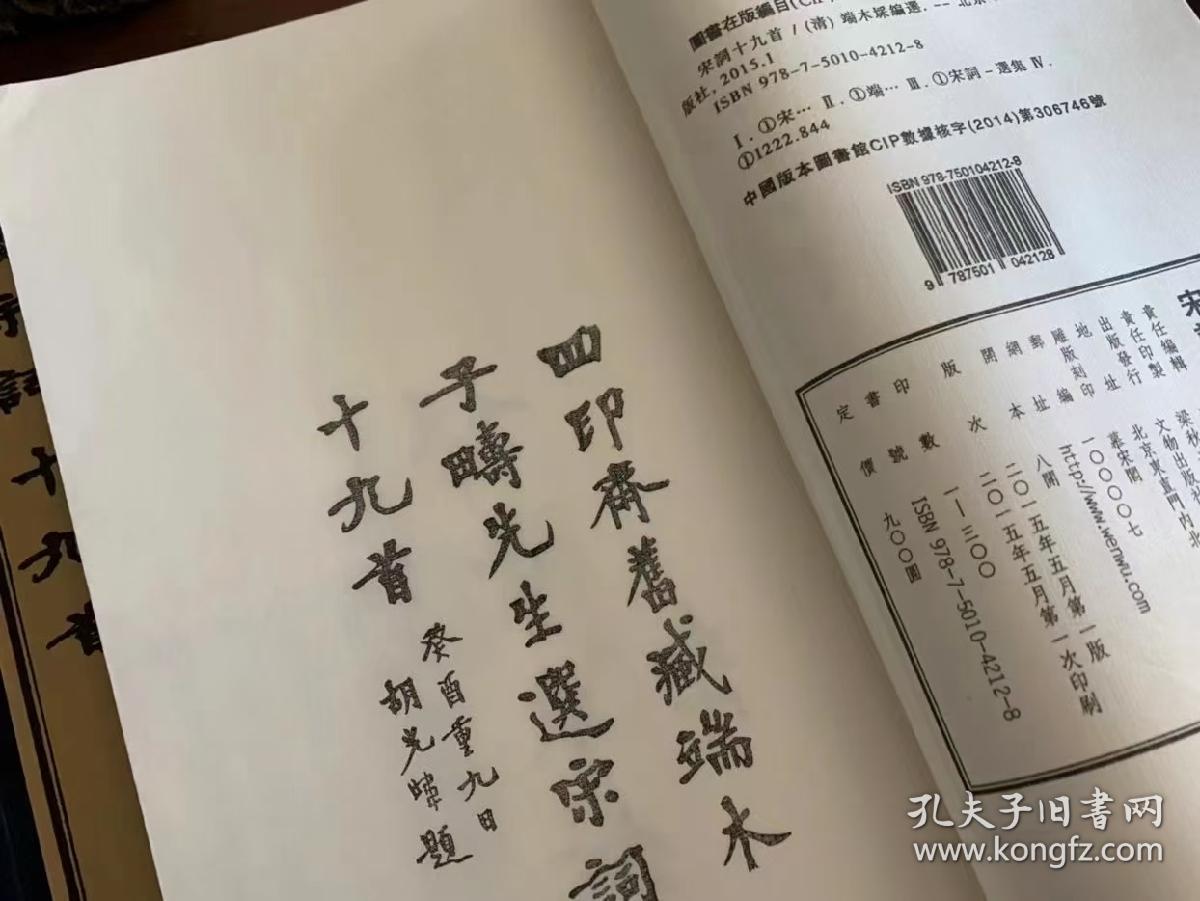 四印齋舊藏端木
子疇先生選宋詞
十九首
癸酉重九日
胡光煒題
圖書在版編目(CIP
宋詞十九首 / (清) 端木埰編選. -- 北京
版社, 2015.1
ISBN 978-7-5010-4212-8
Ⅰ. ①宋… Ⅱ. ①端… Ⅲ. ①宋詞－選集 Ⅳ.
①I222.844
中國版本圖書館CIP數據核字(2014)第306746號
ISBN 978-750104212-8
9 787501 042128
宋
責任編輯
責任印製 梁秋
出版發行 文物出版社
地址 北京東直門内北
雕版刻印 萃宋閣
郵編 一〇〇〇〇七
網址 http://www.wenwu.com
開本 八開
版次 二〇一五年五月第一版
二〇一五年五月第一次印刷
印數 一—三〇〇
書號 ISBN 978-7-5010-4212-8
定價 九〇〇圓
宋詞十九首
孔夫子旧书网
www.kongfz.com